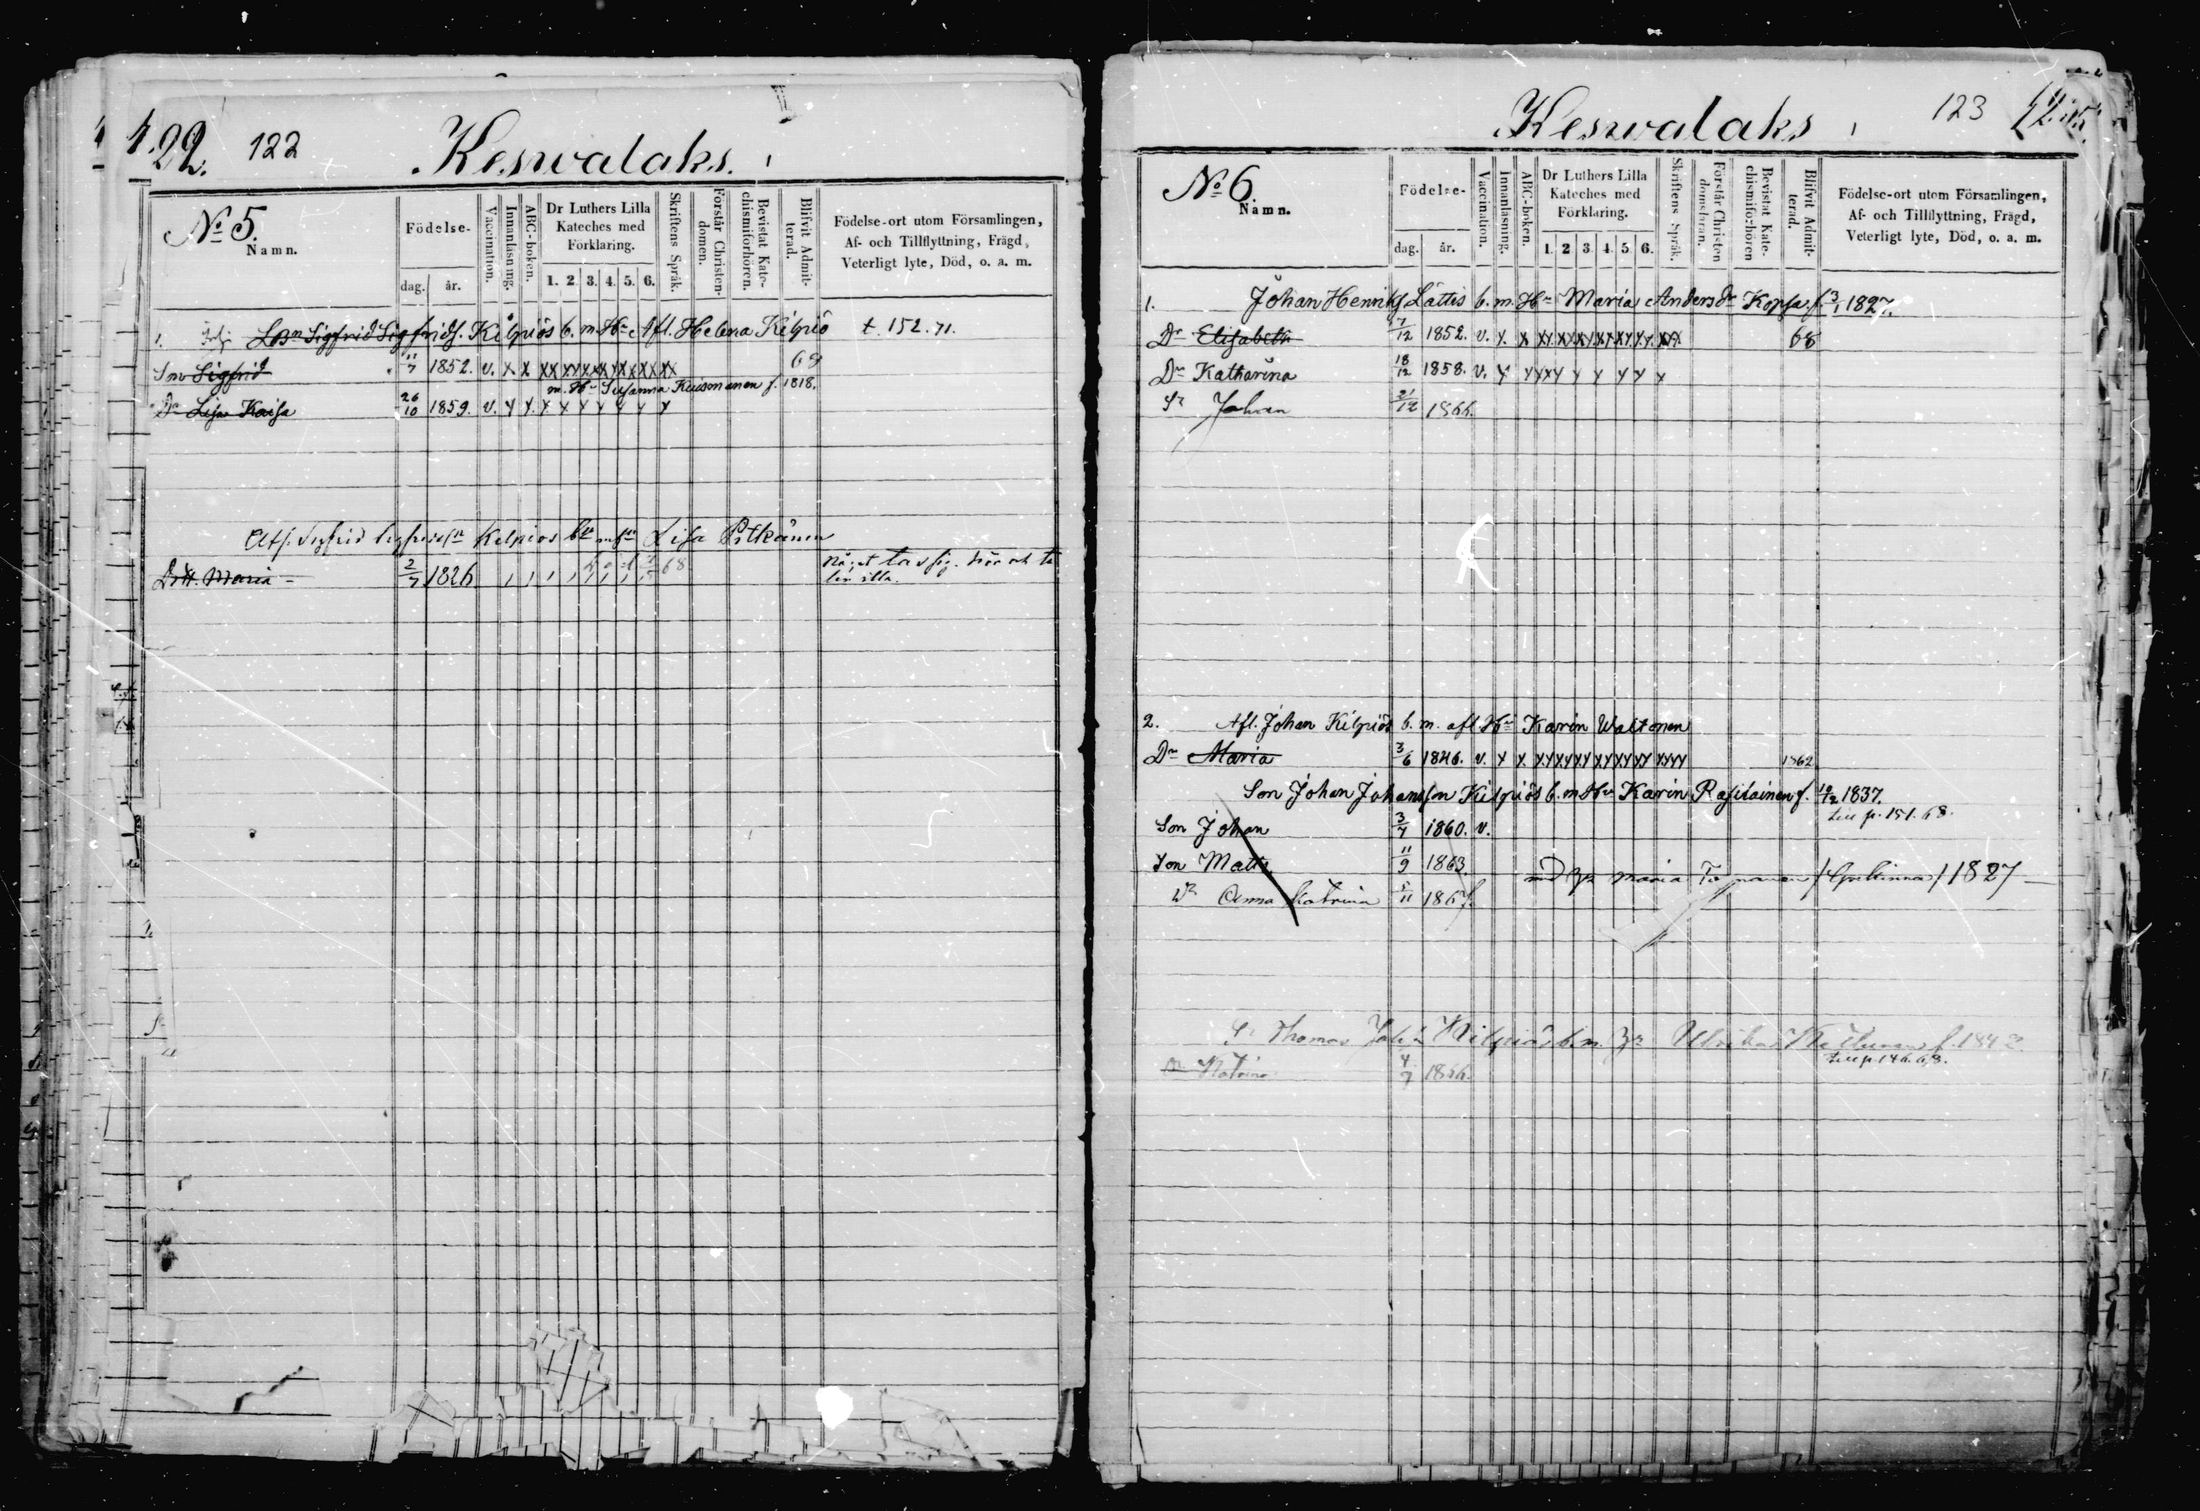 122. 122 Keswalaks.
No 5.
Namn.
Födelse-
dag. år.
Vaccination.
Innanläsning.
ABC-boken.
Dr Luthers Lilla Kateches med Förklaring.
1. 2. 3. 4. 5. 6.
Skriftens Språk.
Förstår Christendomen.
Bevistat Katechismiförhören.
Blifvit Admitterad.
Födelse-ort utom Församlingen,
Af- och Tillflyttning, Frägd,
Veterligt lyte, Död, o. a. m.
1. Sigfrid Sigfridss. Kilpiös b. m. Hu Afl. Helena Kilpiö t. 152. 71.
Son Sigfrid 11/7 1852. v. x x xx xx xx xx xx xx xx 68
m. Hu Susanna Kuismanen f. 1818.
Dr Lisa Kaisa 26/10 1859. v. x x. x x x x x x x
Afl. Sigfrid Sigfridsn Kilpiös Lisa Pitkänen
Dott. Maria 2/7 1826 68 Något
illa.
Keswalaks 123
No 6.
Namn.
Födelse-
dag. år.
Vaccination.
Innanläsning.
ABC-boken.
Dr Luthers Lilla Kateches med Förklaring.
1. 2. 3. 4. 5. 6.
Skriftens Språk.
Förstår Christendomsläran.
Bevistat Katechismiförhören
Blifvit Admitterad.
Födelse-ort utom Församlingen,
Af- och Tillflyttning, Frägd,
Veterligt lyte, Död, o. a. m.
1. Johan Henriks. Lättis b. m. Hu Maria Andersdr Kopsa f. 3/1 1827.
Dr Elisabeth 17/12 1852. v. x. x xx xx xx xx xx xx. xxx 68
Dr Katharina 18/12 1858. v. x x xxx x x x x x x
Sn Johan 21/12 1866.
2. Afl. Johan Kilpiös b. m. afl Hu Karin Waltonen
Dr Maria 3/6 1846. v. x x xx xx xx xx xx xx xxxx 1862
Son Johan Johansson Kilpiös b. m Hu Karin Rasilainen f. 12/2 1837.
till p. 151. 68.
Son Johan 3/7 1860. v.
Son Matts 11/9 1863.
Maria 1827
Dr Anna Katrina 5/11 1867.
Sn Thomas Joh. Kilpiös b. m. Ulrika f. 1842
till p 146. 68.
Dr Katrina 4/7 1866.